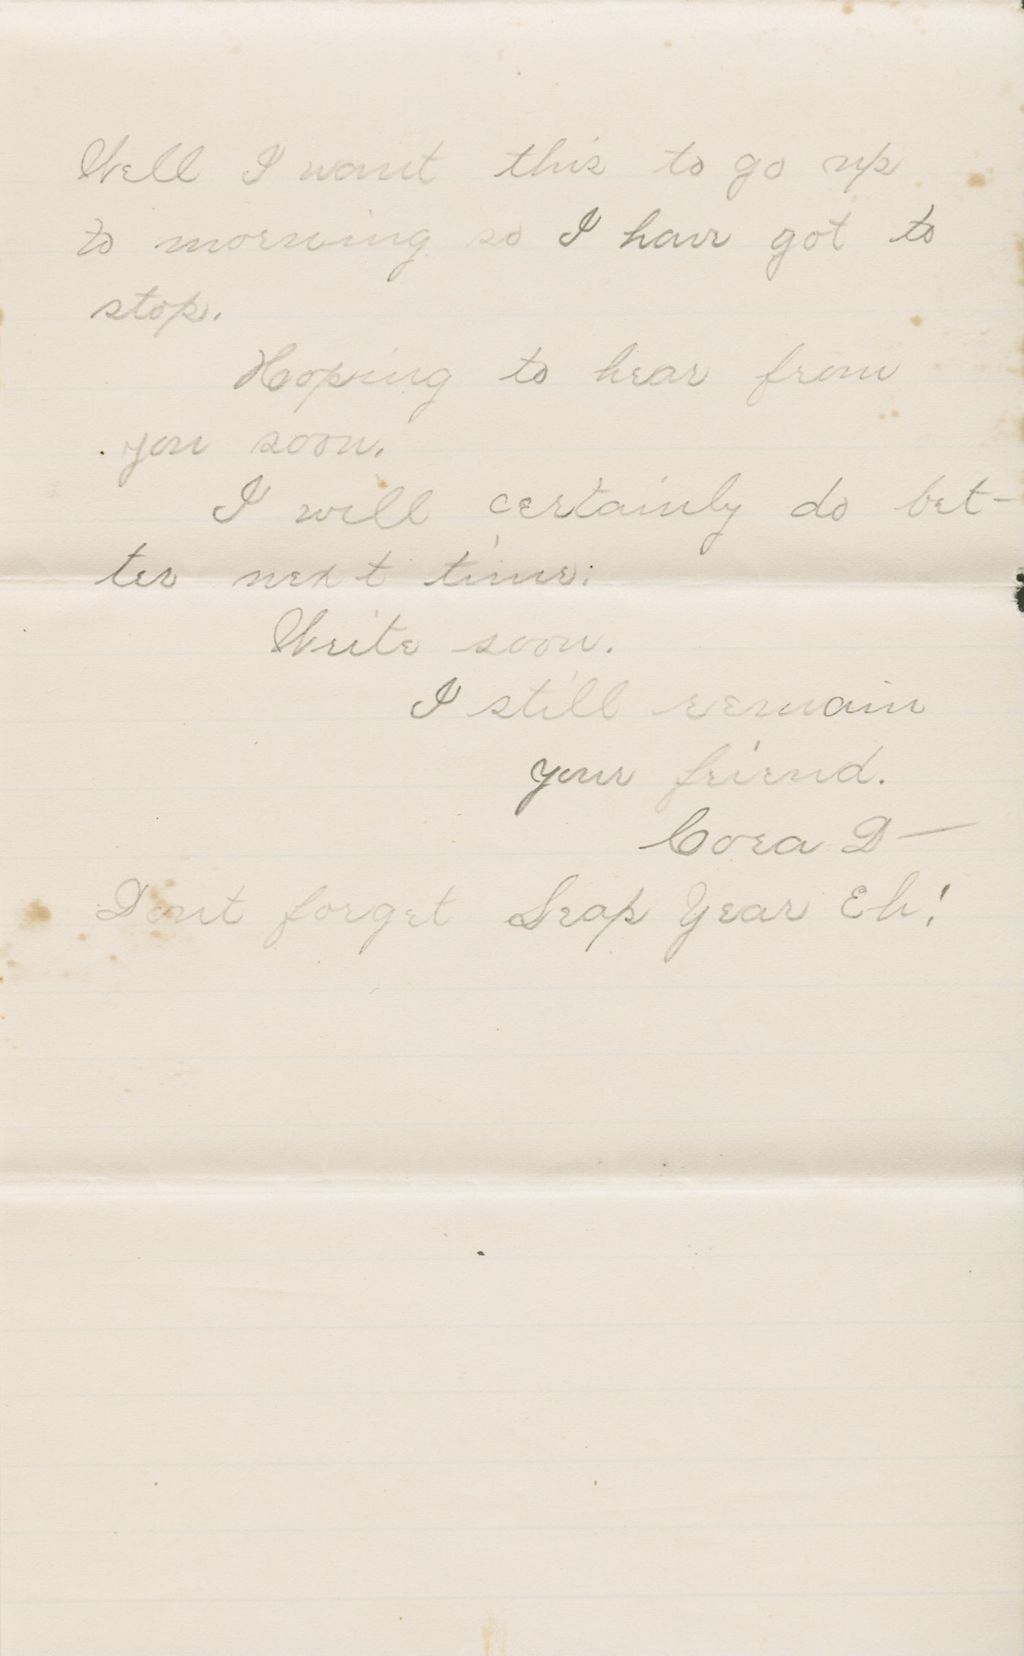 Well I want this to go up
to morning so I have got to
stop.
Hoping to hear from
you soon.
I will certainly do bet-
ter next time.
Write soon.
I still remain
your friend.
Cora D—
Dont forget Leap Year Eh!